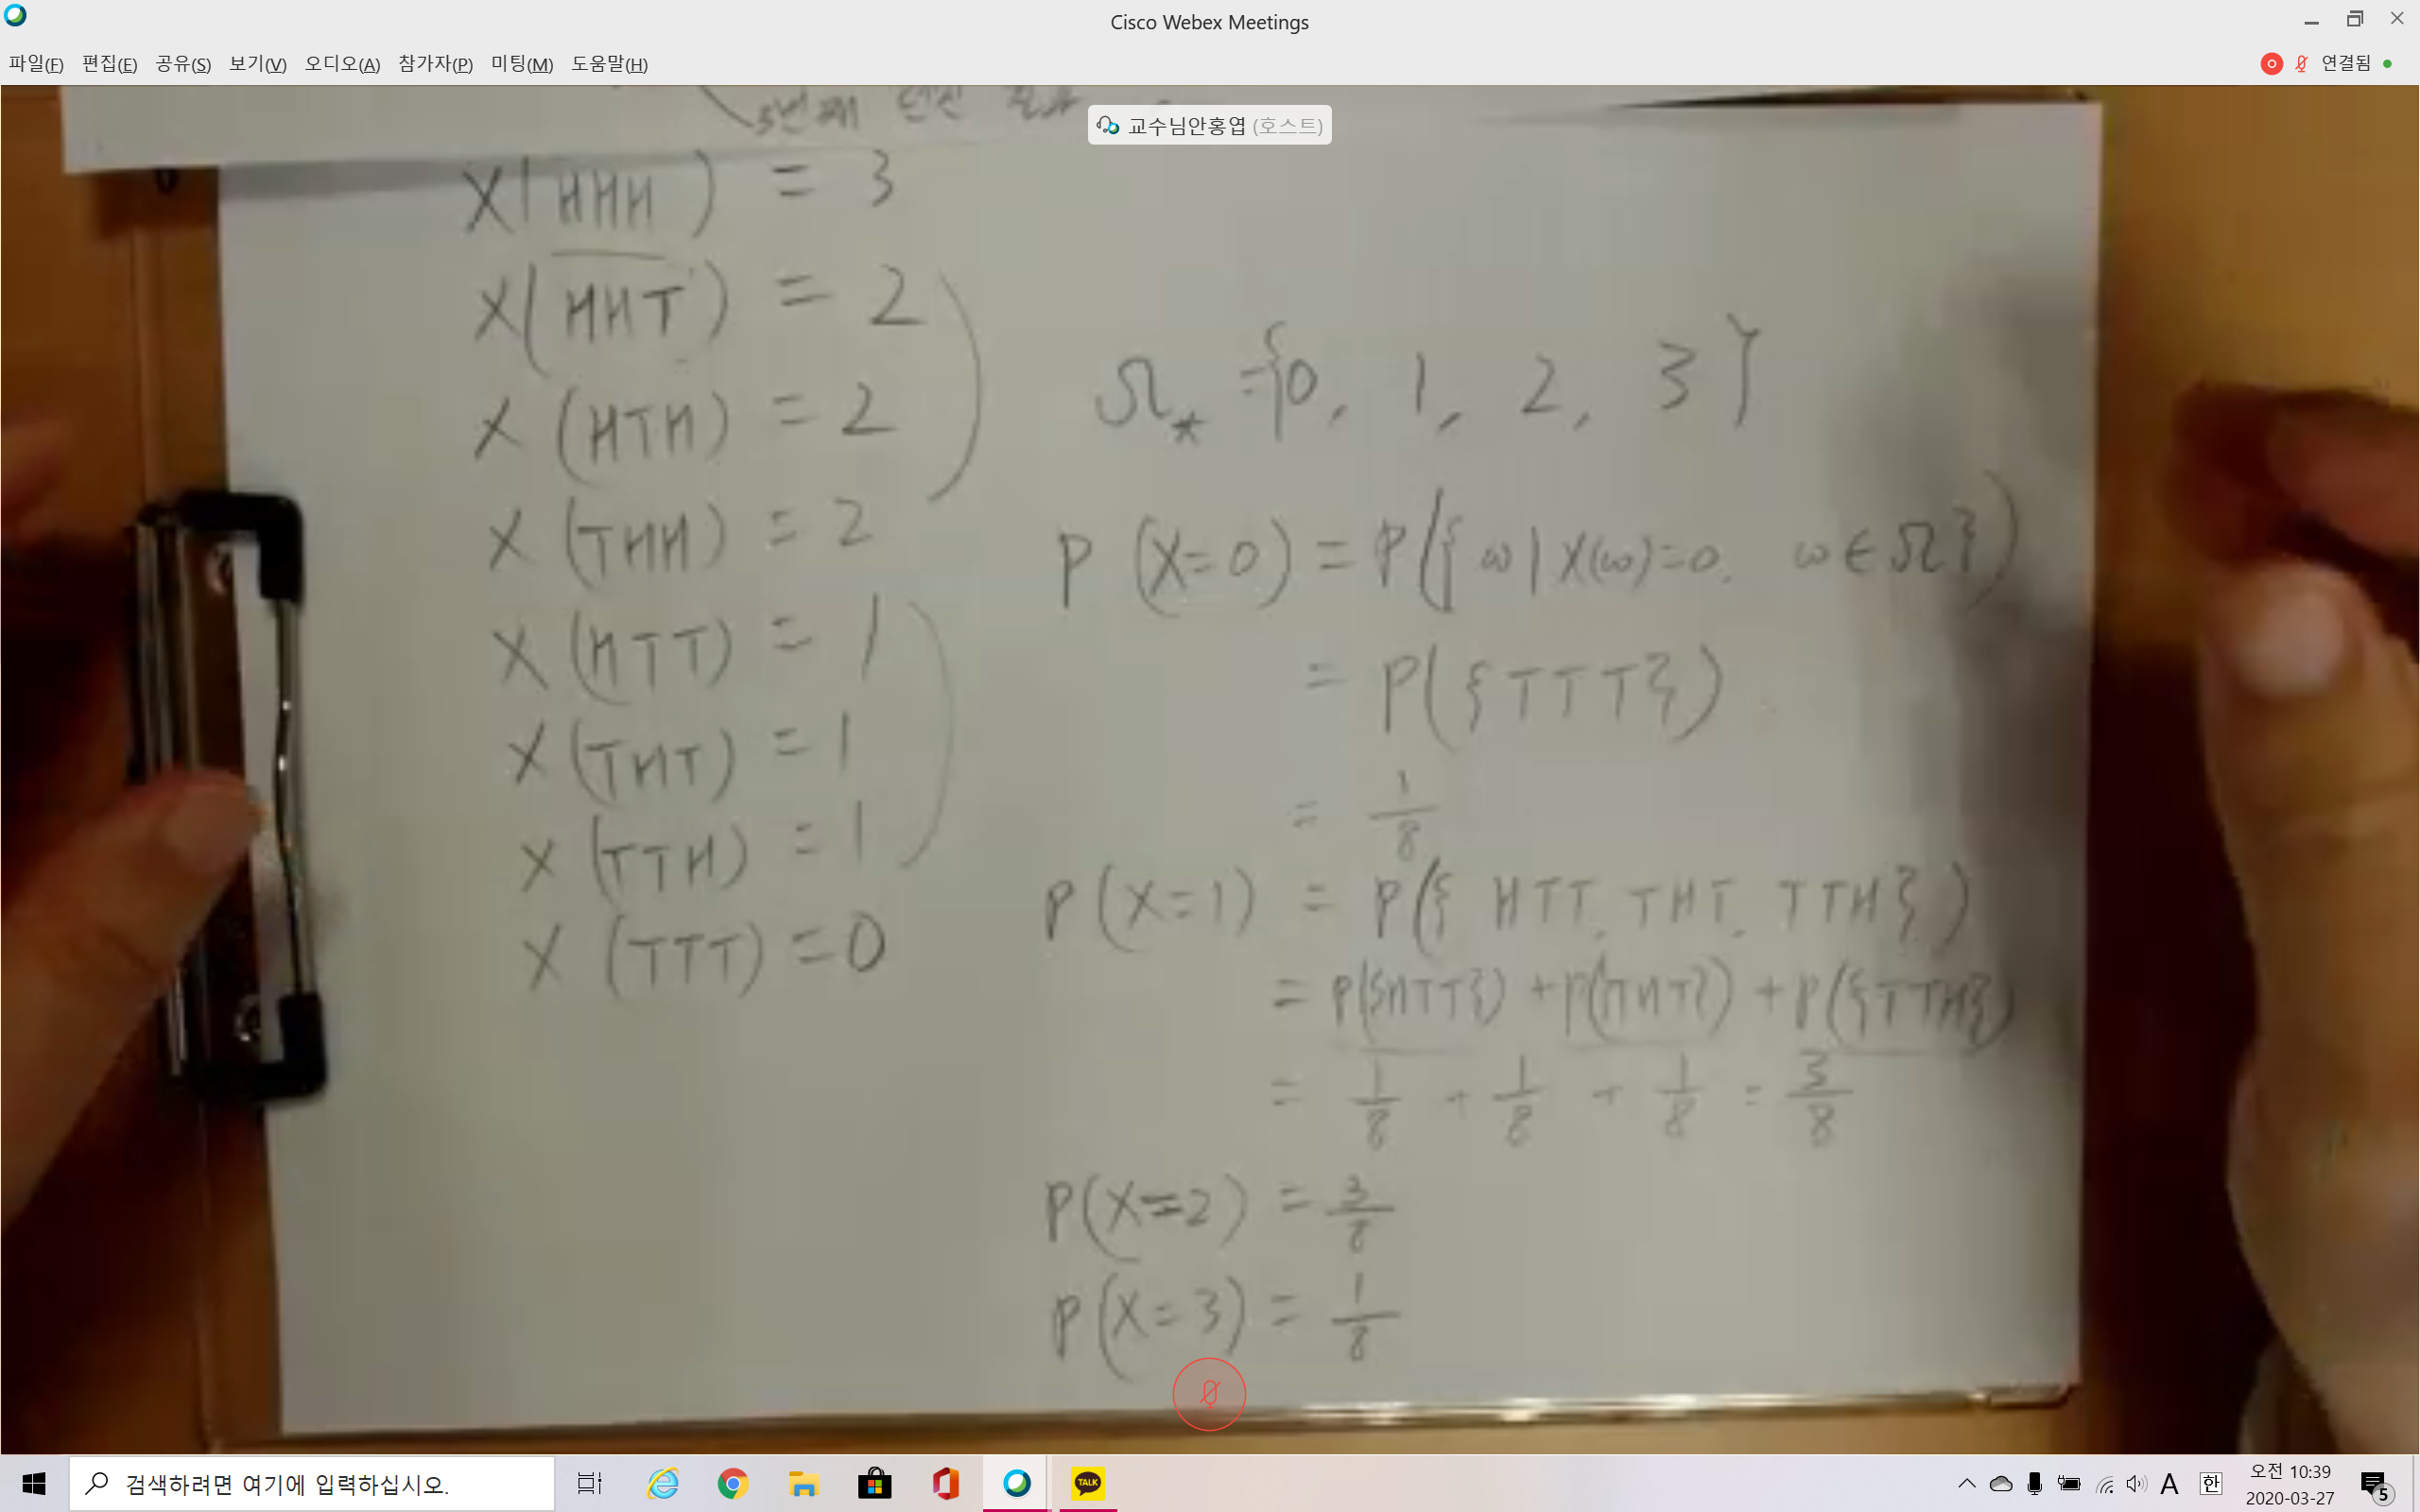 Cisco Webex Meetings
파일(F) 편집(E) 공유(S) 보기(V) 오디오(A) 참가자(P) 미팅(M) 도움말(H)
연결됨
교수님안홍엽 (호스트)
3번째 던진
X(HHH) = 3
X(HHT) = 2
X(HTH) = 2
X(THH) = 2
X(HTT) = 1
X(THT) = 1
X(TTH) = 1
X(TTT) = 0
Ω* = {0, 1, 2, 3}
P(X=0) = P({ω | X(ω)=0, ω ∈ Ω})
= P({TTT})
= 1/8
P(X=1) = P({HTT, THT, TTH})
= P({HTT}) + P(THT}) + P({TTH})
= 1/8 + 1/8 + 1/8 = 3/8
P(X=2) = 3/8
P(X=3) = 1/8
검색하려면 여기에 입력하십시오.
TALK
A
한
오전 10:39
2020-03-27
5